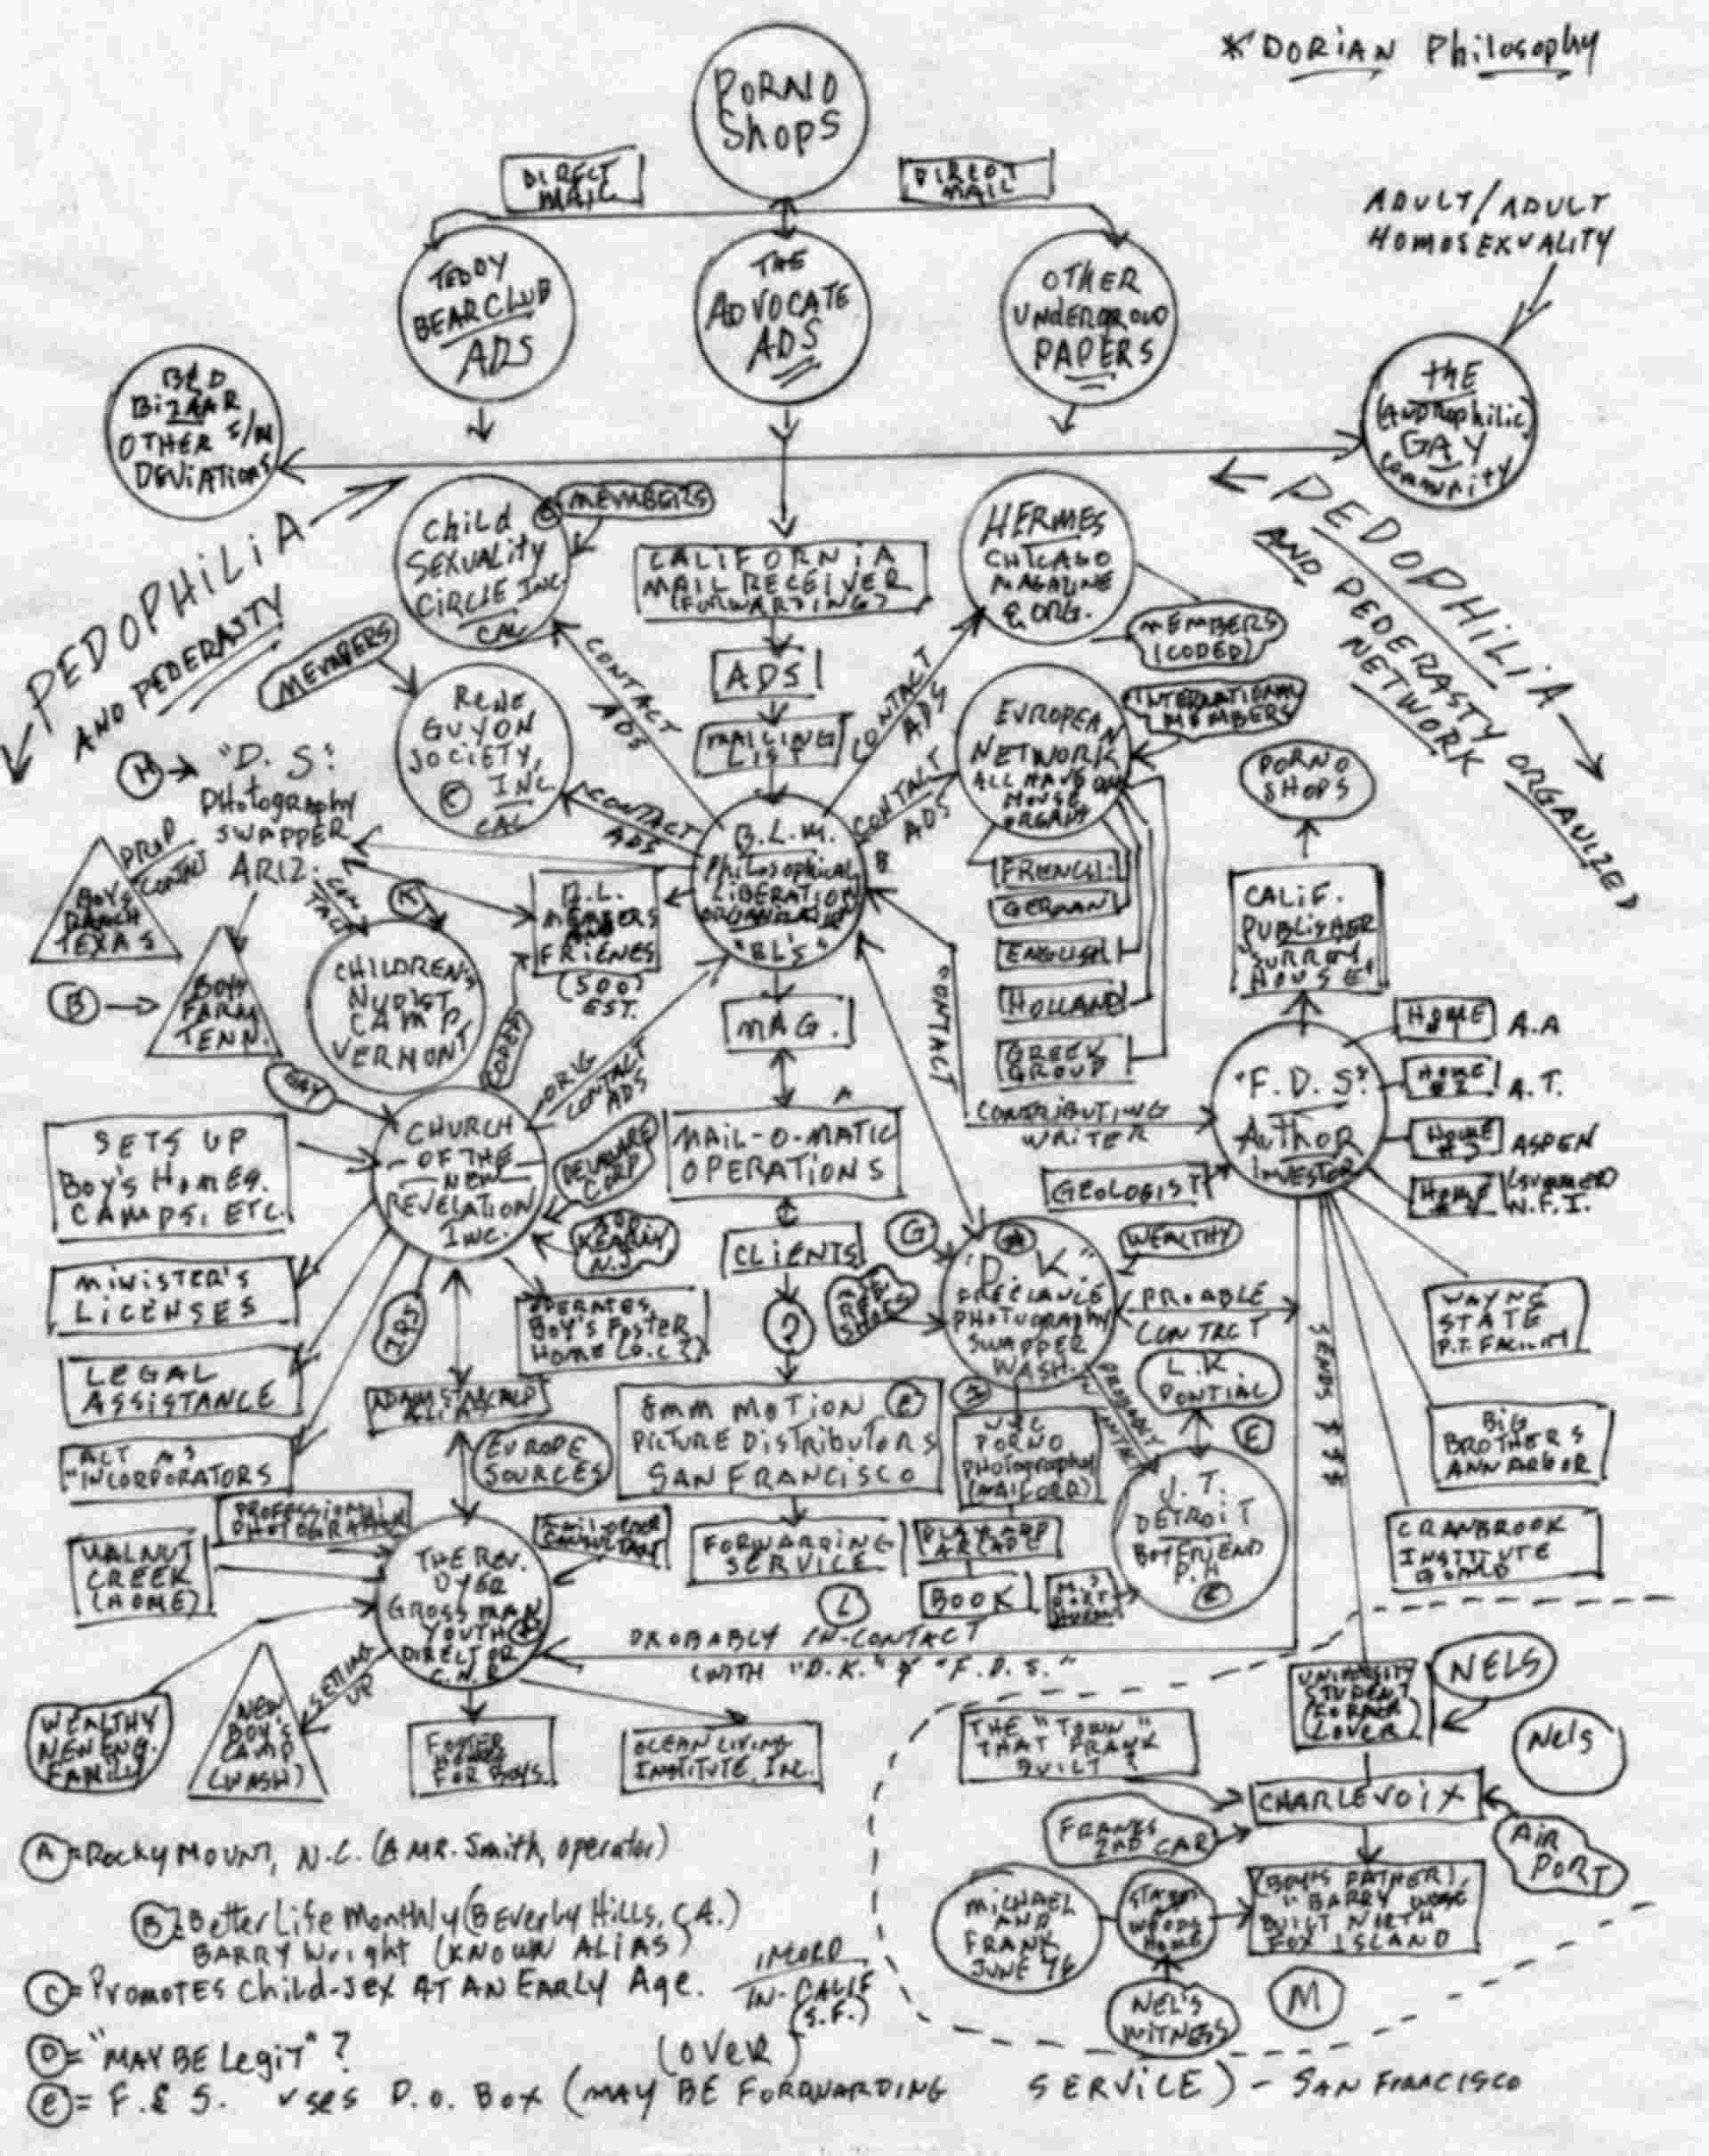 * DORIAN Philosophy
PORNO
Shops
DIRECT
MAIL
DIRECT
MAIL
ADULT/ADULT
HOMOSEXUALITY
TEDDY
BEAR CLUB
ADS
THE
ADVOCATE
ADS
OTHER
UNDERGROUD
PAPERS
B&D
BIZAAR
OTHER S/M
DEVIATIONS
THE
(ANDROPHILIC)
GAY
COMMUNITY
PEDOPHILIA
AND PEDERASTY
PEDOPHILIA
AND PEDERASTY ORGANIZED
NETWORK
Child
SEXUALITY
CIRCLE INC.
CAL
C
MEMBERS
CALIFORNIA
MAIL RECEIVER
(FORWARDING)
HERMES
CHICAGO
MAGAZINE
& ORG.
MEMBERS
(CODED)
MEMBERS
ADS
MAILING
LIST
CONTACT
ADS
CONTACT
ADS
RENE
GUYON
SOCIETY,
INC.
C
CAL
CONTACT
ADS
CONTACT
ADS
EUROPEAN
NETWORK
ALL HAVE OWN
HOUSE
ORGANS
INTERNATIONAL
MEMBERS
PORNO
SHOPS
H
"D. S."
Photography
SWAPPER
ARIZ.
PROP
CONTACT
BOYS
RANCH
TEXAS
CON
TACT
K
B.L.
MEMBERS
AND
FRIENDS
(500)
EST.
B.L.M.
Philosophical
LIBERATION
ORGANIZATION
"BL'S"
B
FRENCH
GERMAN
ENGLISH
HOLLAND
GREEK
GROUP
CALIF.
PUBLISHER
"SURREY
HOUSE"
B
BOYS
FARM
TENN.
CHILDREN'S
NUDIST
CAMP,
VERMONT
CODED
MAG.
CONTACT
CONTRIBUTING
WRITER
"F. D. S."
AUTHOR
INVESTOR
HOME
#1
A.A
HOME
#2
A.T.
HOME
#3
ASPEN
HOME
(SUMMER)
N.F.I.
GAY
ORIG
CONTACT
ADS
CHURCH
OF THE
NEW
REVELATION
INC.
DELAWARE
CORP
KEARNY
N.J.
SETS UP
BOY'S HOMES,
CAMPS, ETC.
MAIL-O-MATIC
OPERATIONS
A
GEOLOGIST
MINISTER'S
LICENSES
CLIENTS
G
"D. K."
FREELANCE
PHOTOGRAPHY
SWAPPER
WASH.
WEALTHY
PROABLE
CONTACT
IRS
OPERATES
BOY'S FOSTER
HOME (D.C?)
?
L.K.
PONTIAC
SENDS $$$
WAYNE
STATE
P.T. FACILITY
LEGAL
ASSISTANCE
ADAM STARCHILD
ALIAS
EUROPE
SOURCES
8MM MOTION E
PICTURE DISTRIBUTORS
SAN FRANCISCO
PORNO
Photography
(MAILORD)
PROBABLY
CONTACT
E
BIG
BROTHERS
ANN ARBOR
ACT AS
"INCORPORATORS
PROFESSIONAL
PHOTOGRAPHER
J. T.
DETROIT
BOYFRIEND
P.H
CRANBROOK
INSTITUTE
BOARD
WALNUT
CREEK
(HOME)
THE REV.
DYER
GROSSMAN
YOUTH
DIRECTOR
C.N.R.
MAIL ORDER
CONSULTANT
FORWARDING
SERVICE
ARCADE
BOOK
M.S
PORT
HURON
L
PROBABLY IN-CONTACT
(WITH "D.K." & "F.D.S."
WEALTHY
NEW ENG.
FAMILY
SETTING
UP
NEW
BOY'S
CAMP
(WASH)
FOSTER
HOMES
FOR BOYS
OCEAN LIVING
INSTITUTE, INC.
UNIVERSITY
STUDENT
(FORMER
LOVER)
NELS
Nels
THE "TOWN"
THAT FRANK
BUILT
CHARLEVOIX
FRANKS
2ND CAR
AIR
PORT
MICHAEL
AND
FRANK
JUNE 76
WOODS
HOME
(BOY'S FATHER)
"BARRY
BUILT NORTH
FOX ISLAND
NEL'S
WITNESS
M
A = ROCKY MOUNT, N.C. (A MR. Smith, operator)
B = Better Life Monthly (BEVERLY Hills, CA.)
BARRY Wright (KNOWN ALIAS)
C = PROMOTES Child-sex AT AN EARLY Age.
INCORD
IN-CALIF
(S.F.)
D = "MAY BE Legit" ?
(OVER)
E = F.& S. uses P.O. Box (MAY BE FORWARDING SERVICE) - SAN FRANCISCO